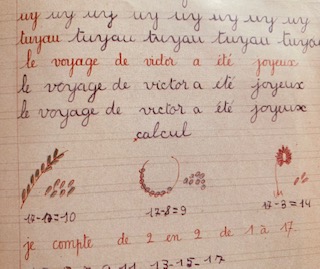 uy uy uy uy uy uy uy uy
tuyau tuyau tuyau tuyau tuyau
le voyage de victor a été joyeux
le voyage de victor a été joyeux
le voyage de victor a été joyeux
calcul
17-8=9 17-3=14
je compte de 2 en 2 de 1 à 17.
9 11 13-15-17